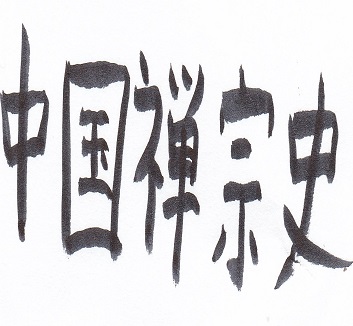 中国禅宗史